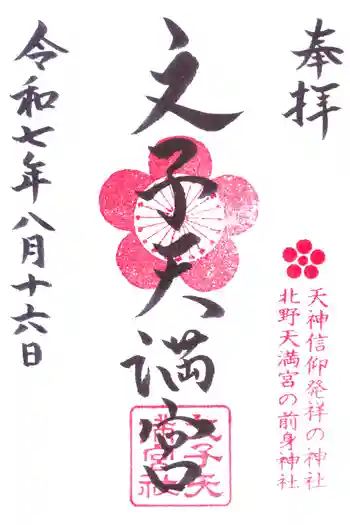 奉拝
天神信仰発祥の神社
北野天満宮の前身神社
文子天満宮
文子天満宮社
令和七年八月十六日